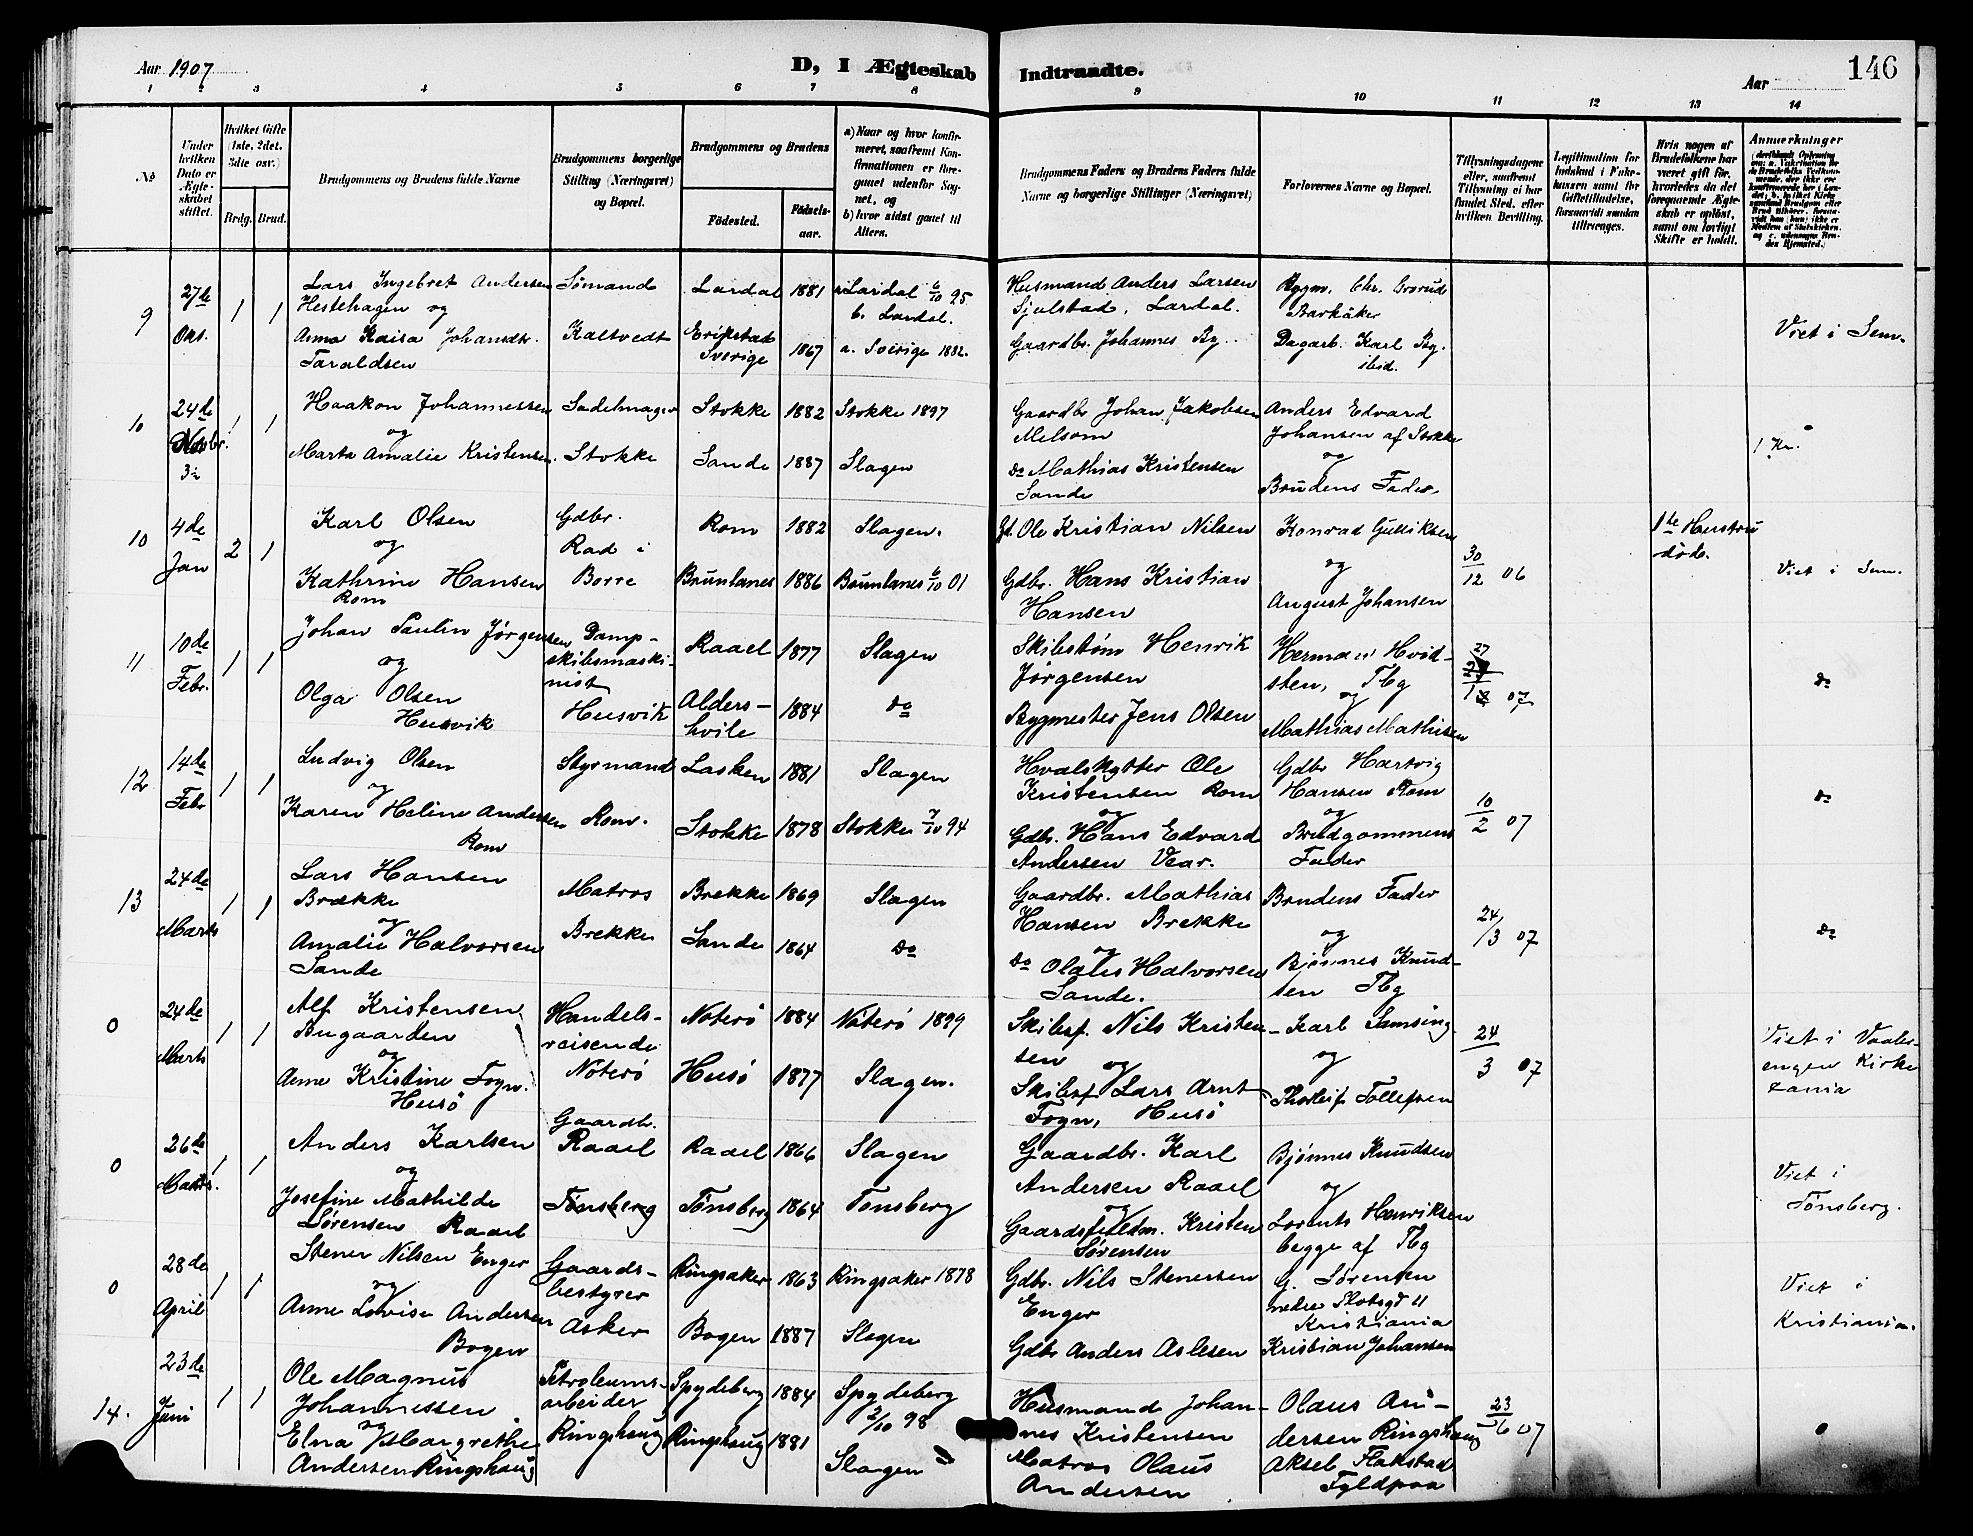 Aar 1907
D, I Ægteskab Indtraadte.
Aar
146
1 2 3 4 5 6 7 8 9 10 11 12 13 14
No
Under hvilken Dato er Ægteskabet stiftet.
Hvilket Gifte (1ste, 2det, 3die osv.)
Brdg. Brud.
Brudgommens og Brudens fulde Navne
Brudgommens borgerlige Stilling (Næringsvei) og Bopæl.
Brudgommens og Brudens
Fødested.
Fødsels-aar.
a) Naar og hvor konfirmeret, saafremt Konfirmationen er foregaaet udenfor Sognet, og
b) hvor sidst gaaet til Alters.
Brudgommens Faders og Brudens Faders fulde Navne og borgerlige Stillinger (Næringsvei)
Forlovernes Navne og Bopæl.
Tillysningsdagene eller, saafremt Tillysning ei har fundet Sted, efter hvilken Bevilling.
Legitimation for Indskud i Enkekassen samt for Giftetilladelse, forsaavidt saadan tiltrænges.
Hvis nogen af Brudefolkene har været gift før, hvorledes da det foregaaende Ægteskab er opløst, samt om lovligt Skifte er holdt.
Anmærkninger
9 27de Okt. 1 1
Lars Ingebret Andersen Sømand Lardal 1881 a. Lardal 6/10 95
Hestehagen og b. Lardal.
Anna Kaisa Johansdtr. Kaltvedt Erikstad 1867 a. Sverige 1882.
Taraldsen Sverige
Husmand Anders Larsen Bygm. Chr. Grorud
Sjulstad, Lardal. Barkåker
Gaardbr. Johannes By Dagarb. Karl By
Viet i Sem.
10 24de Novbr. 1 1
Haakon Johannessen Sadelmager Stokke 1882 Stokke 1897
og
Marta Amalie Kristensen. Stokke Sande 1887 Slagen
Gaardbr Johan Jakobsen Anders Edvard
Melsom Johansen af Stokke
og
Do Mathias Kristensen
Sande Brudens Fader.
1 Kr.
10 4de Jan 2 1
Karl Olsen Gdbr. Rom 1882 Slagen.
og Rad i
Kathrine Hansen Borre Brunlanes 1886 Brunlanes 6/10 01
Rom
Gd. Ole Kristian Nilsen Konrad Gulliksen
og
Gdbr. Hans Kristian
Hansen August Johansen
30/12 06
1te Hustru døde.
Viet i Sem.
11 10de Febr. 1 1
Johan Paulin Jørgensen Damp-
og skibsmaski- Raael 1877 Slagen
nist
Olga Olsen Husvik Alders- 1884 Do
Husvik hvile
Skibstøm Henrik Herman Hvid-
Jørgensen sten, Tbg
og
Bygmester Jens Olsen Mathias Mathisen
27/1 07
Do
12 14de Febr 1 1
Ludvig Olsen Styrmand Lasken 1881 Slagen
og
Karen Heline Andersen Rom. Stokke 1878 Stokke 7/10 94
Rom
Hvalskytter Ole Gdbr Hartvig
Kristensen Rom Hansen Rom
og og
Gdbr. Hans Edvard Brudgommens
Andersen Vear. Fader
10/2 07
Do
13 24de Marts 1 1
Lars Hansen
Brække Matros Brekke 1869 Slagen
og
Amalie Halvorsen Brekke Sande 1864 Do
Sande
Gaardbr. Mathias Brudens Fader
Hansen Brekke
og og
Do Olaus Halvorsen Bjønnes Knud-
Sande. sen Tbg
24/3 07
Do
0 24de Marts 1 1
Alf Kristensen Handels- Noterø 1884 Nøterø 1899
Bugaarden reisende
og
Anne Kristine Fogn. Nøterø Husø 1877 Slagen.
Husø
Skibsf. Nils Kristen- Karl Samsing
sen
og og
Skibsf Lars Arnt Thorleif Tollefsen
Fogn, Husø
24/3 07
Viet i Vaaler-
engen Kirke
0 26de Marts. 1 1
Gaardb.
Anders Karlsen Raael Raael 1866 Slagen
og
Josefine Mathilde Tønsberg Tønsberg 1864 Tønsberg
Sørensen Raael
Gaardbr. Karl Bjønnes Knudsen
Andersen Raael
og og
Gaardsfuldm. Kristen Lorents Henriksen
Sørensen begge af Tbg
Viet i
Tønsberg.
0 28de April 1 1
Stener Nilsen Enger Gaards- Ringsaker 1863 Ringsaker 1878
og bestyrer
Anne Lovise Andersen Asker Bogen 1887 Slagen
Bogen
Gdbr. Nils Stenersen G. Sørensen
Enger nedre Slotsgd 11
Kristiania
Gdbr Anders Aslesen Kristian Johansen
Viet i
Kristiania.
14. 23de Juni 1 1
Ole Magnus Petroleums- Spydeberg 1884 Spydeberg
Johannessen arbeider 2/10 98
og
Elna Margrethe Ringshaug Ringshaug 1881
Andersen Ringshaug Slagen
Husmand Johan- Olaus An-
nes Kristensen dersen Ringshaug
Matros Olaus Aksel Flakstad
Andersen Fyldpaa
23/6 07